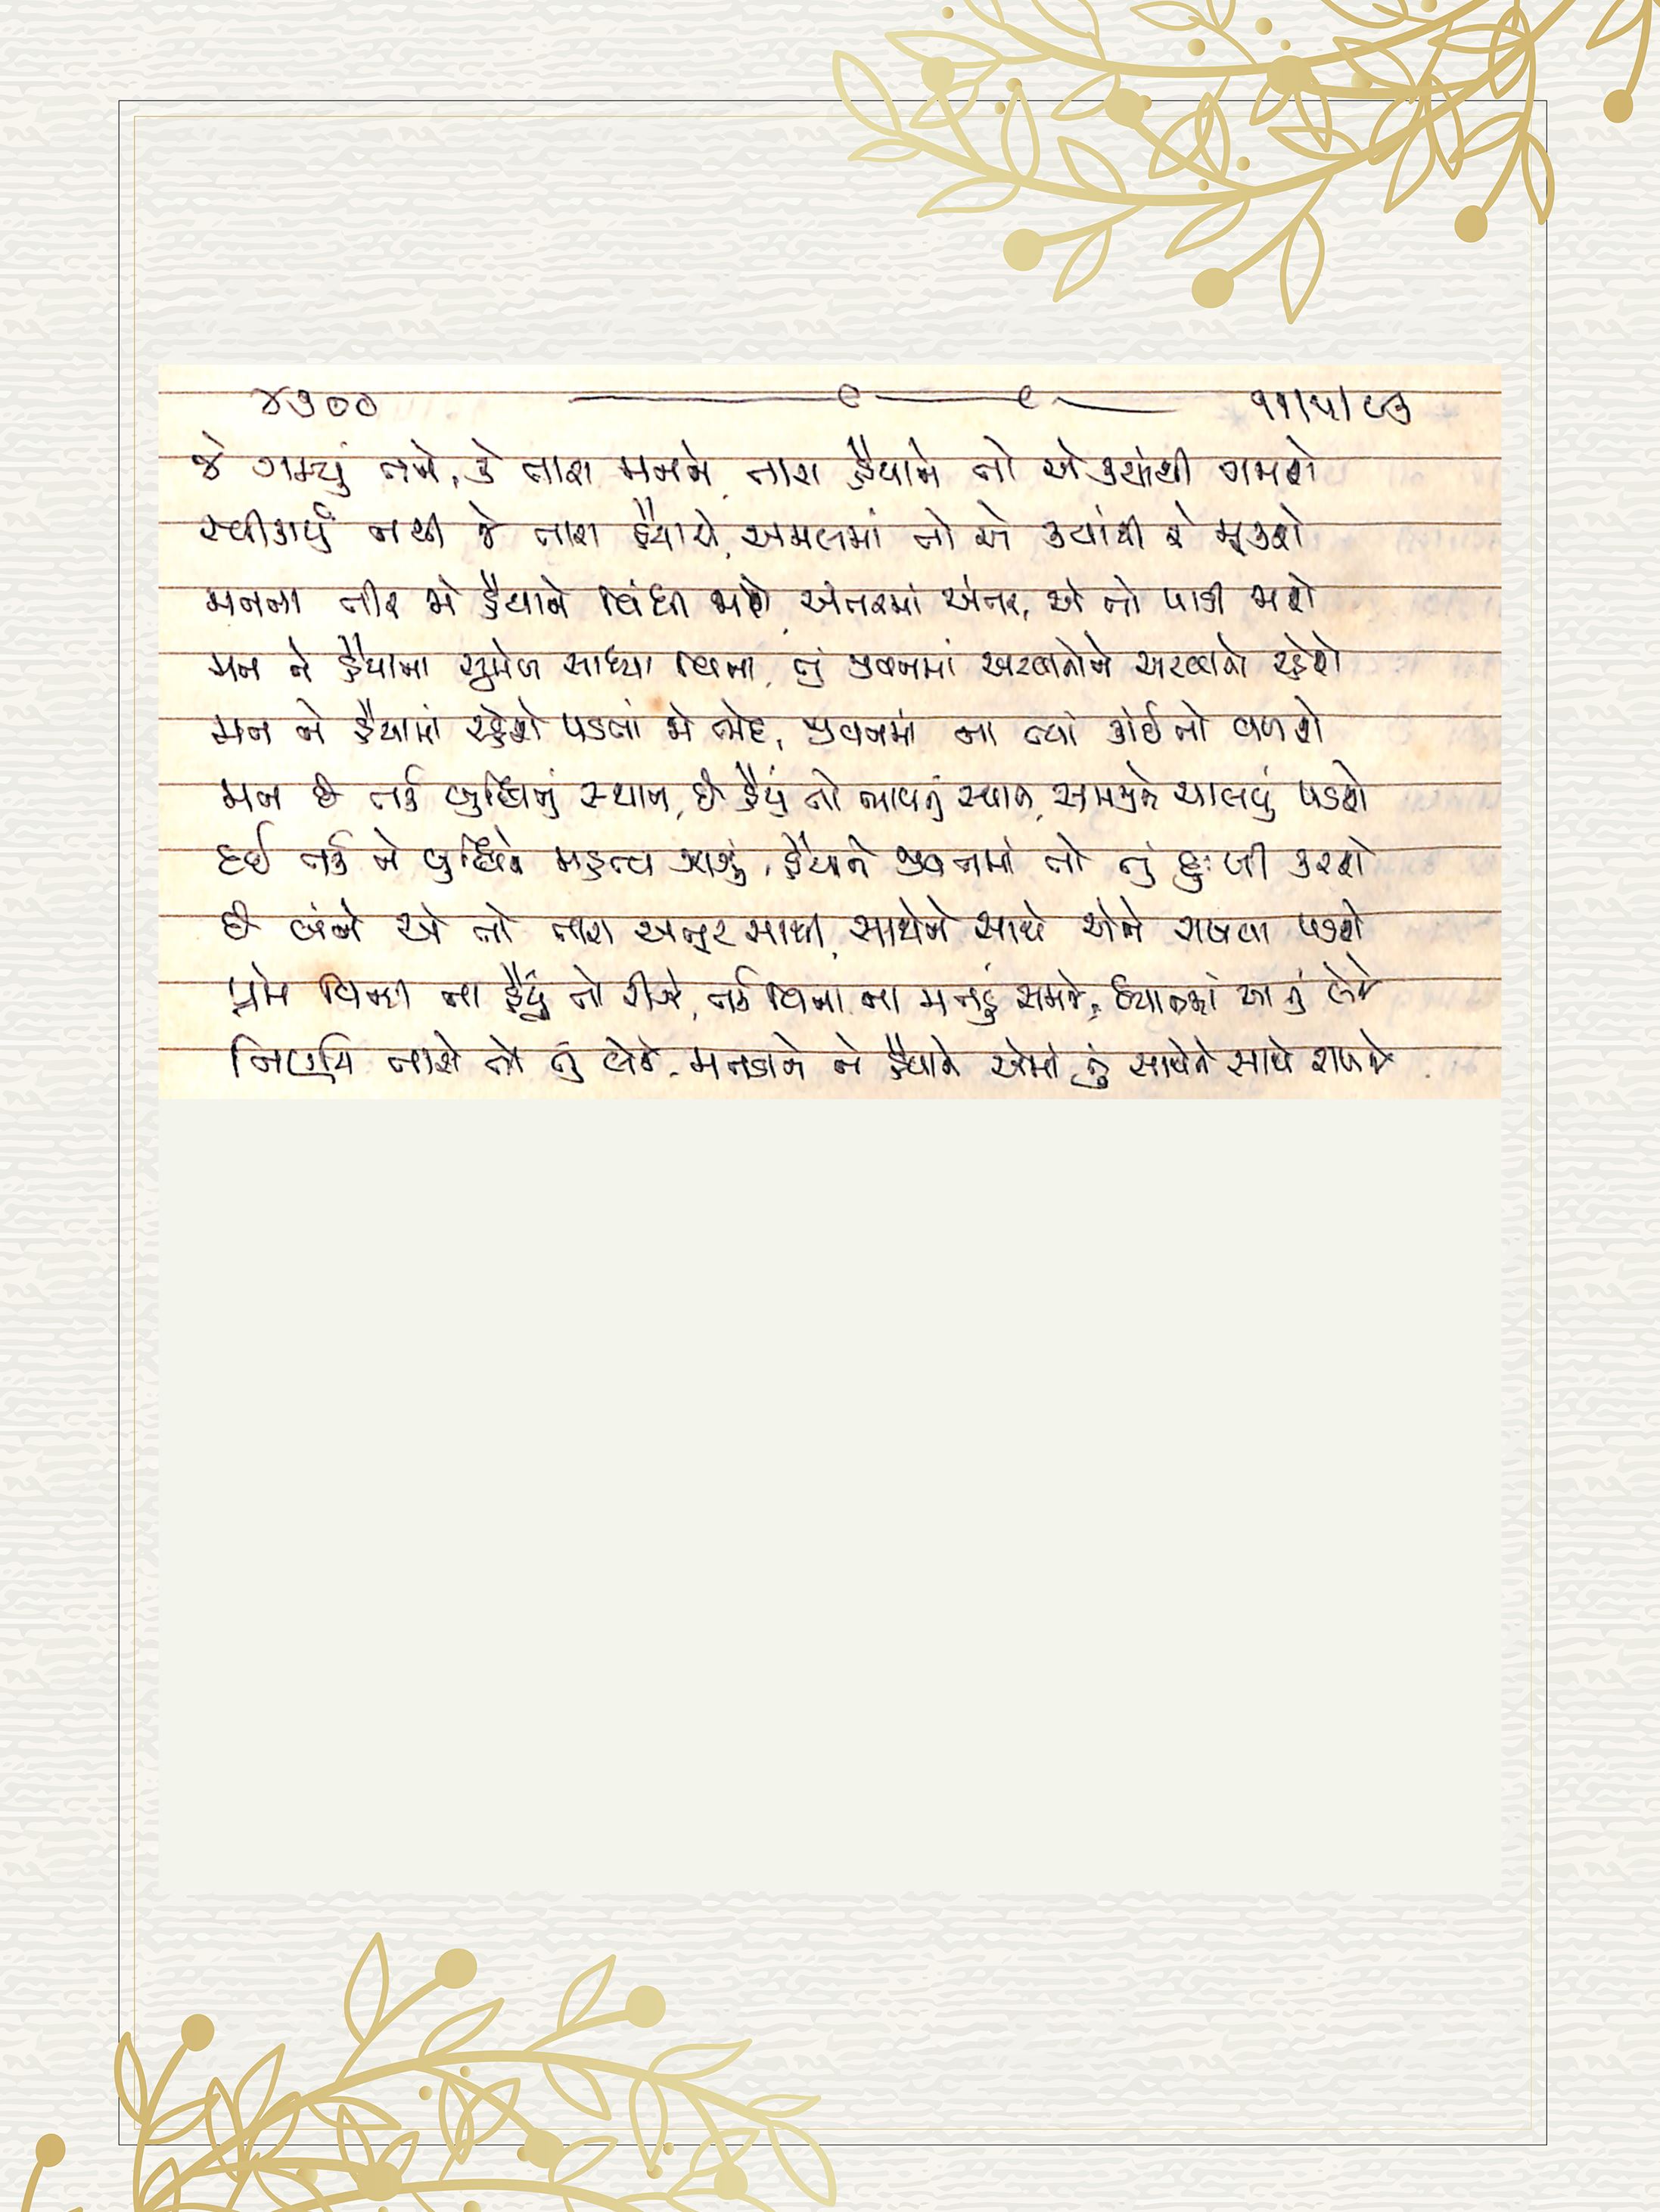 ૪૭૦૦ ૧૧/૫/૯૩
જે ગમ્યું તને, કે તારા મનને, તારા હૈયાને તો એ ક્યાંથી ગમશે
સ્વીકાર્યું નથી જે તારા હૈયાએ, અમલમાં તો એ ક્યાંથી રે મૂકશે
મનના તીર જો હૈયાને વિંધી જાશે, અંતરમાં અંતર, એ તો પાડી જાશે
મન ને હૈયાના સુમેળ સાધ્યા વિના, તું જીવનમાં અટવાતોને અટવાતો રહેશે
મન ને હૈયામાં રહેશે પડતાં જો ભેદ, જીવનમાં ના ત્યાં કોઈ તો વળશે
મન છે તર્ક બુદ્ધિનું સ્થાન, છે હૈયું તો ભાવનું સ્થાન, સમજીને ચાલવું પડશે
દઈ તર્ક ને બુદ્ધિને મહત્વ ઝાઝું, હૈયાને જીવનમાં તો તું દુઃખી કરશે
છે બંને એ તો તારા અંતર સાથી, સાથેને સાથે એને રાખવા પડશે
પ્રેમ વિના ના હૈયું તો રીઝે, તર્ક વિના ના મનડું સમજે, ધ્યાનમાં આ તું લેજે
નિર્ણય જ્યારે તો તું લેજે, મનડાને ને હૈયાને એમાં તું સાથેને સાથે રાખજે